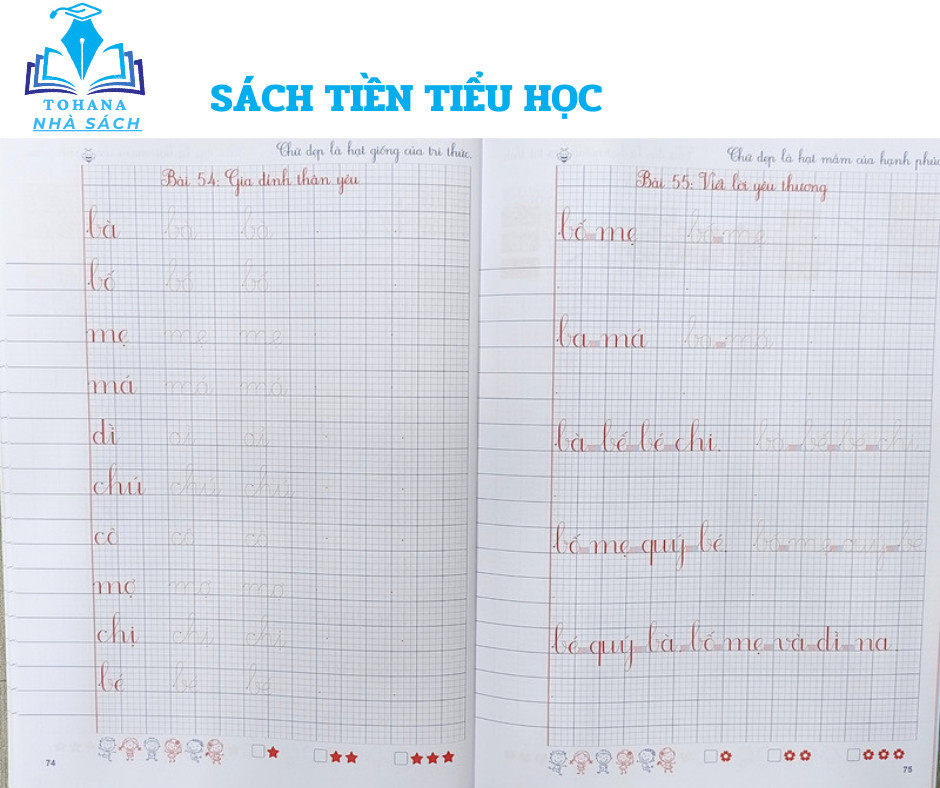 TOHANA
NHÀ SÁCH
SÁCH TIỀN TIỂU HỌC
Chữ đẹp là hạt giống của tri thức.
Bài 54: Gia đình thân yêu
bà bà bà
bố bố bố
mẹ mẹ mẹ
má má má
dì dì dì
chú chú chú
cô cô cô
mợ mợ mợ
chị chị chị
bé bé bé
74
Chữ đẹp là hạt mầm của hạnh phúc
Bài 55: Viết lời yêu thương
bố mẹ bố mẹ
ba má ba má
bà bế bé chi. bà bế bé chi.
bố mẹ quý bé. bố mẹ quý bé
bé quý bà bố mẹ và dì na.
75